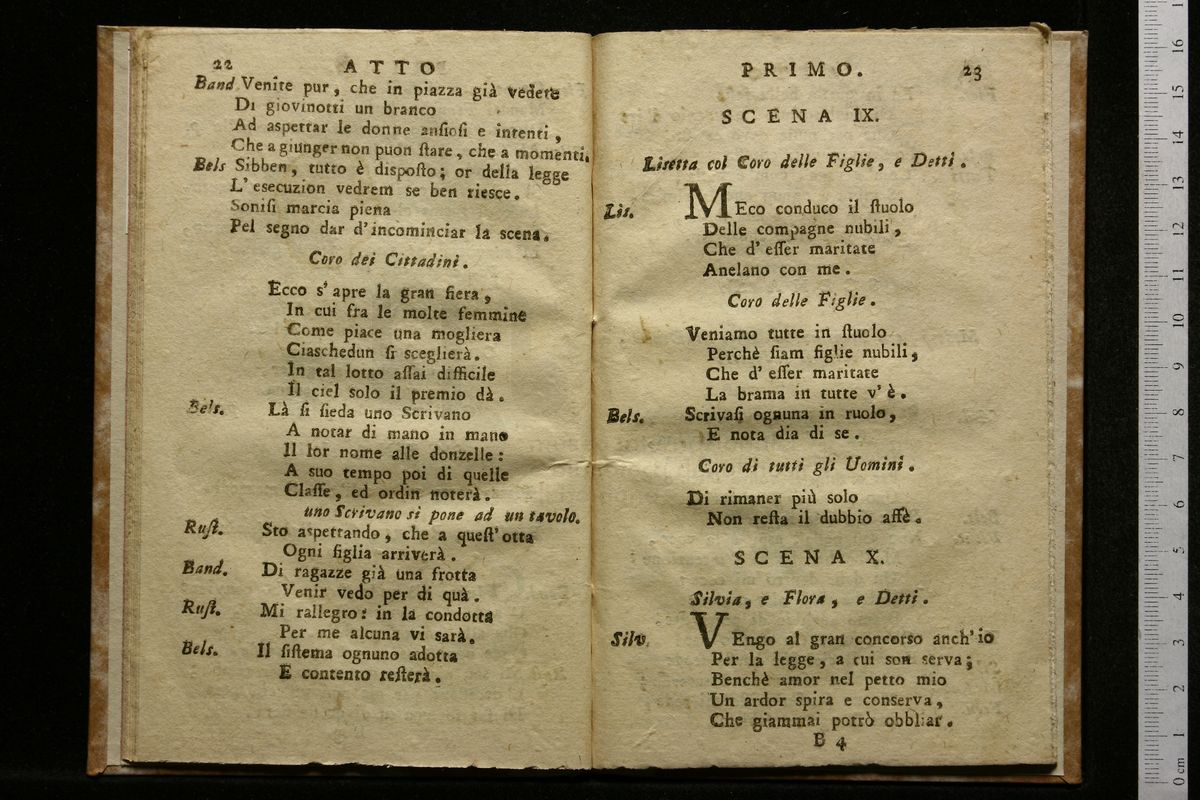 22 ATTO
Band Venite pur, che in piazza già vedete
Di giovinotti un branco
Ad aspettar le donne ansiosi e intenti,
Che a giunger non puon stare, che a momenti.
Bels Sibben, tutto è disposto; or della legge
L' esecuzion vedrem se ben riesce.
Sonisi marcia piena
Pel segno dar d'incominciar la scena.
Coro dei Cittadini.
Ecco s' apre la gran fiera,
In cui fra le molte femmine
Come piace una mogliera
Ciaschedun si sceglierà.
In tal lotto assai difficile
Il ciel solo il premio dà.
Bels. Là si sieda uno Scrivano
A notar di mano in mano
Il lor nome alle donzelle:
A suo tempo poi di quelle
Classe, ed ordin noterà.
uno Scrivano si pone ad un tavolo.
Rust. Sto aspettando, che a quest'otta
Ogni figlia arriverà.
Band. Di ragazze già una frotta
Venir vedo per di quà.
Rust. Mi rallegro: in la condotta
Per me alcuna vi sarà.
Bels. Il sistema ognuno adotta
E contento resterà.
PRIMO. 23
SCENA IX.
Lisetta col Coro delle Figlie, e Detti.
Lis. MEco conduco il stuolo
Delle compagne nubili,
Che d' esser maritate
Anelano con me.
Coro delle Figlie.
Veniamo tutte in stuolo
Perchè siam figlie nubili,
Che d' esser maritate
La brama in tutte v' è.
Bels. Scrivasi ognuna in ruolo,
E nota dia di se.
Coro di tutti gli Uomini.
Di rimaner più solo
Non resta il dubbio affè.
SCENA X.
Silvia, e Flora, e Detti.
Silv. VEngo al gran concorso anch'io
Per la legge, a cui son serva;
Benchè amor nel petto mio
Un ardor spira e conserva,
Che giammai potrò obbliar.
B 4
0 cm 1 2 3 4 5 6 7 8 9 10 11 12 13 14 15 16